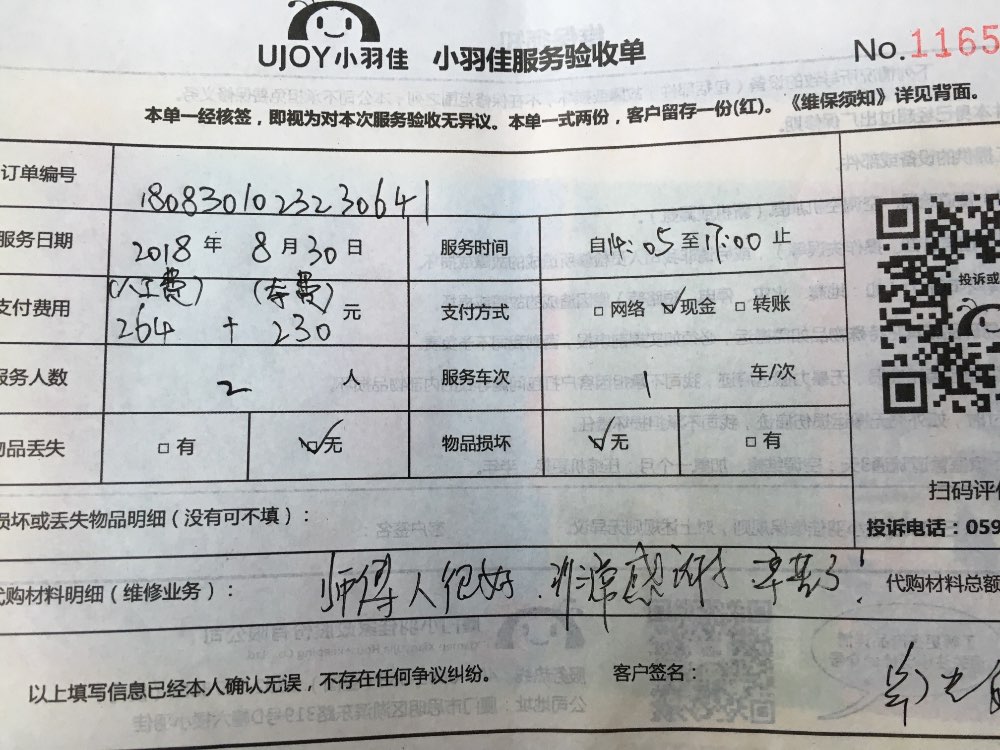 UJOY小羽佳 小羽佳服务验收单 No.1165
本单一经核签，即视为对本次服务验收无异议。本单一式两份，客户留存一份(红)。《维保须知》详见背面。
订单编号 180830102323230641
服务日期 2018 年 8 月 30 日 服务时间 自14:05至17:00 止
支付费用 (人工费) 264 + (车费) 230 元 支付方式 □网络 ☑现金 □转账
服务人数 2 人 服务车次 1 车/次
物品丢失 □有 ☑无 物品损坏 ☑无 □有
损坏或丢失物品明细（没有可不填）：
扫码评价
投诉电话：059
投诉或
代购材料明细（维修业务）： 师傅人很好、非常感谢 辛苦了！ 代购材料总额
以上填写信息已经本人确认无误，不存在任何争议纠纷。 客户签名：